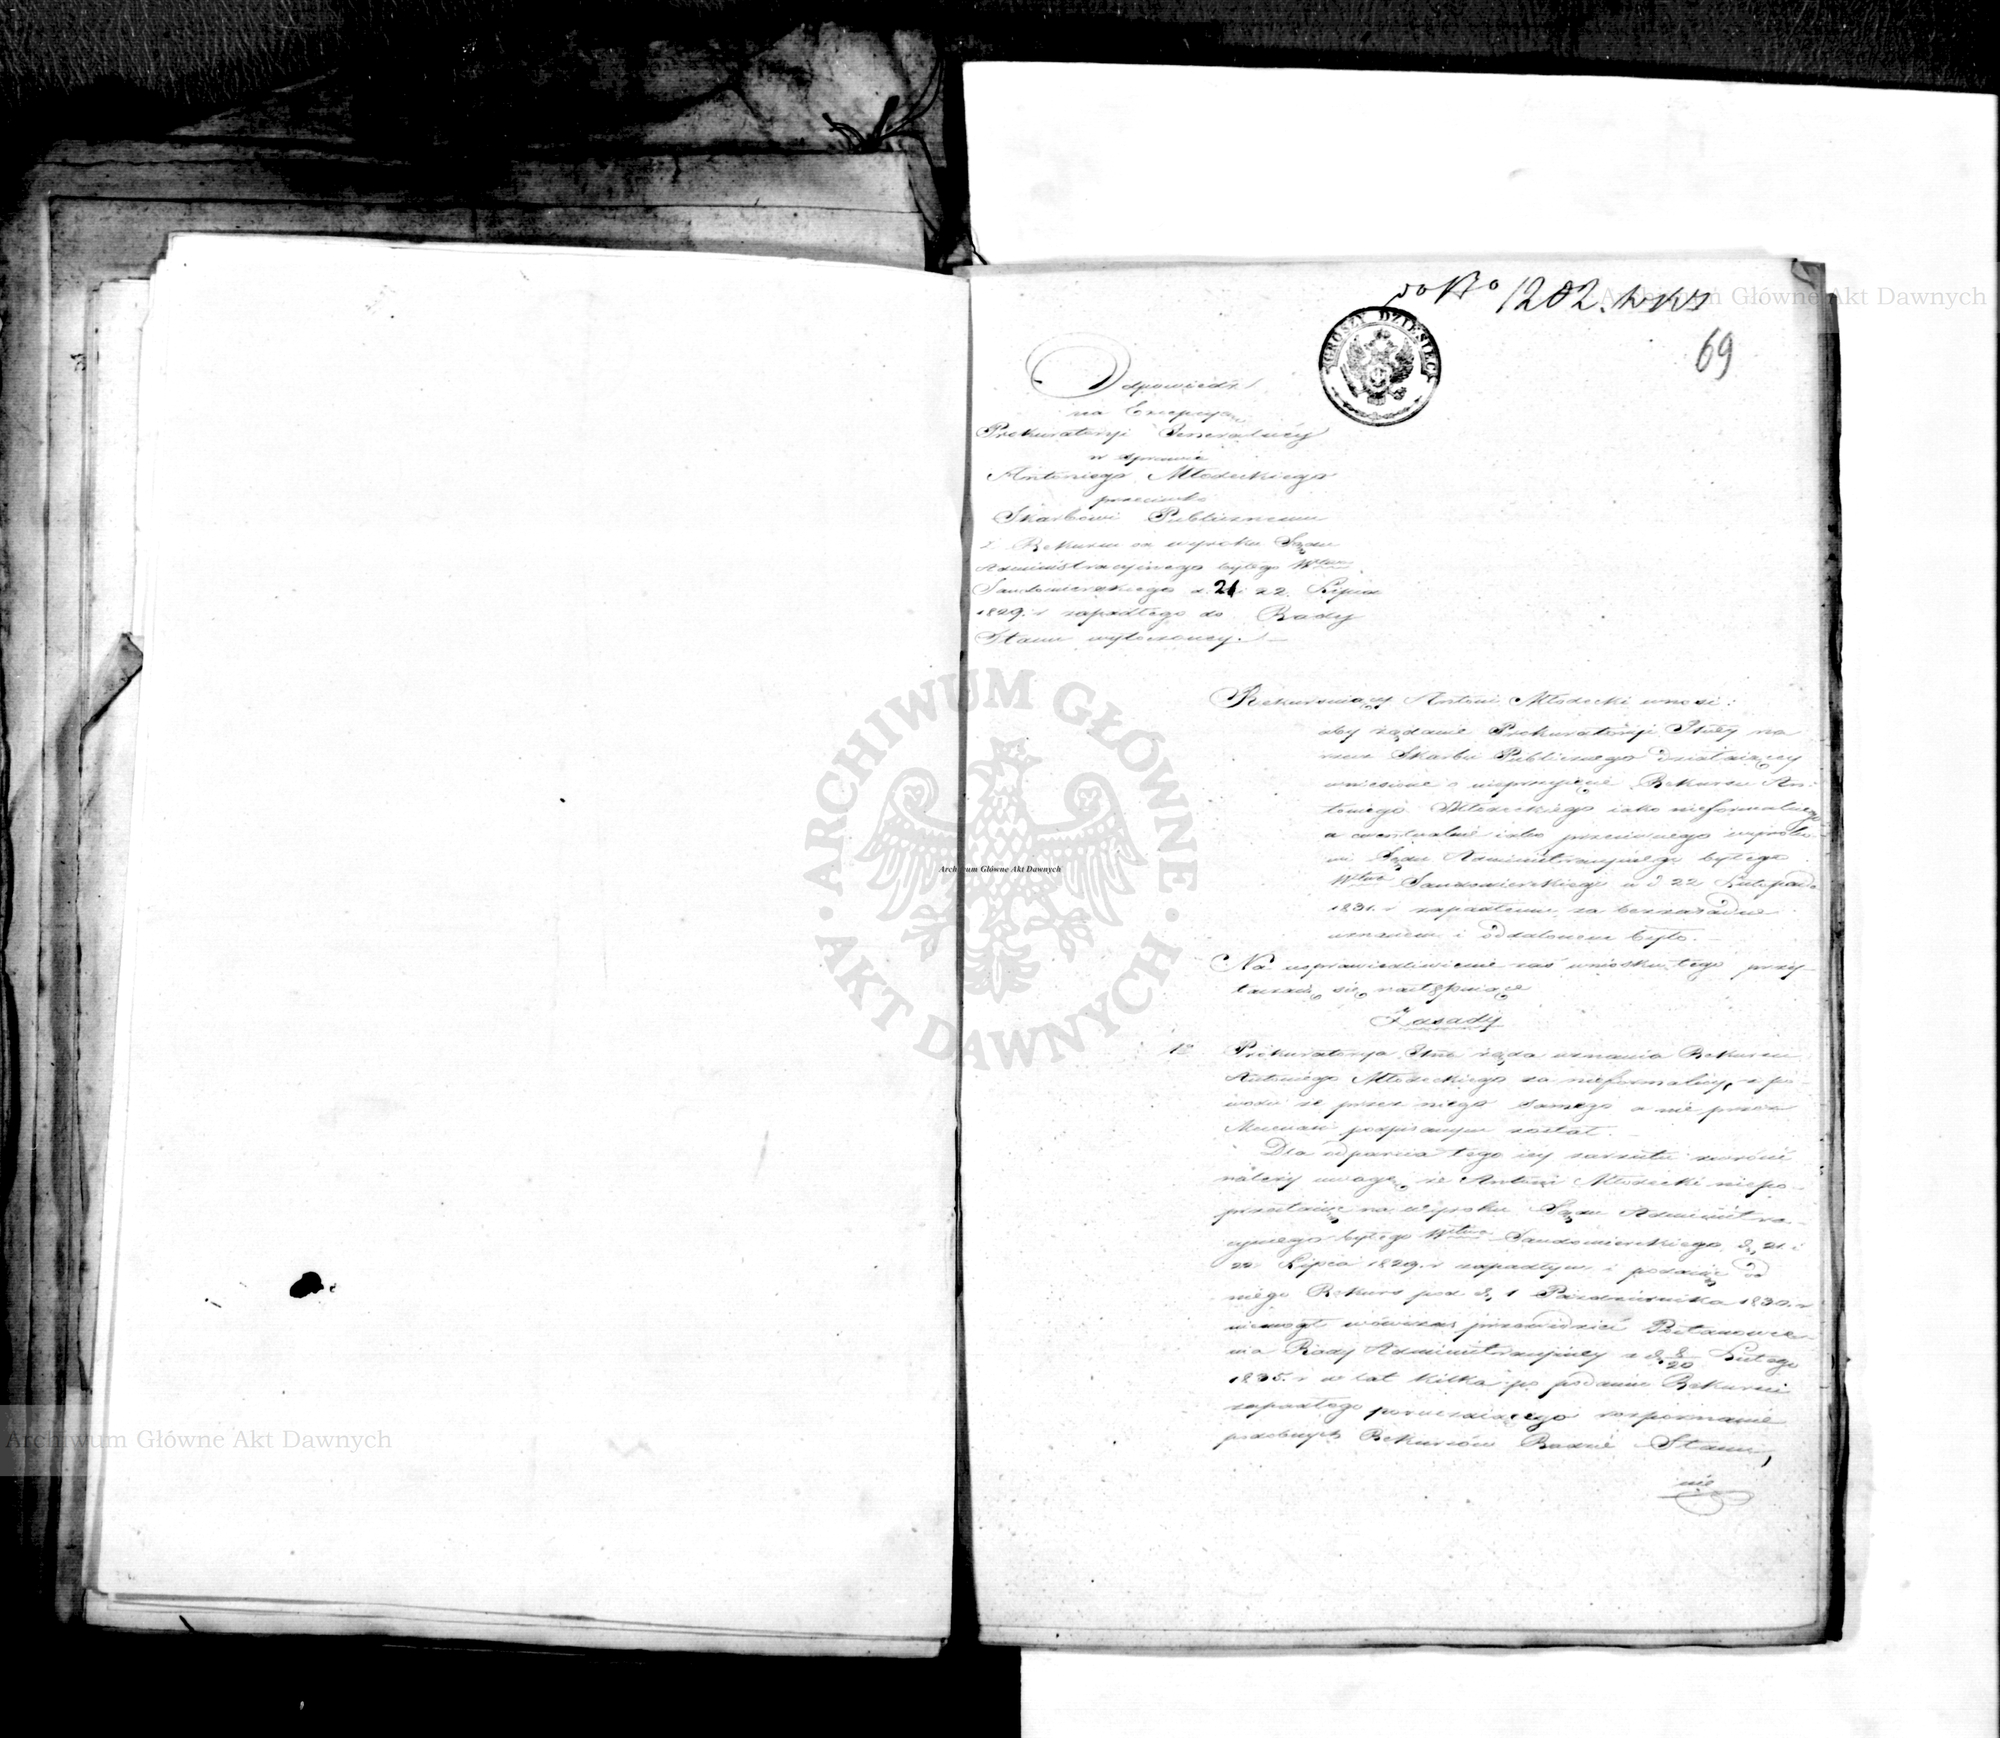 do No 1202.
69
GROSZY DZIESIĘĆ
Odpowiedź
na Excepcyą
Prokuratoryi Generalnéy
w sprawie
Antoniego Młodeckiego
przeciwko
Skarbowi Publicznemu
z Rekursu od wyroku Sądu
Administracyinego byłego Wdztwa
Sandomierskiego d. 21 i 22. Lipca
1829. r zapadłego do Rady
Stanu wytoczoney.
Rekursuiący Antoni Młodecki wnosi:
aby żądanie Prokuratoryi na
rzecz Skarbu Publicznego działaiącey
wniesione o nieprzyięcie Rekursu An-
toniego Młodeckiego iako nieformalnego
a ewentualnie iako przeciwnego wyroko-
wi Sądu Administracyinego byłego
Wdztwa Sandomierskiego w d 22 Listopada
1831. r zapadłemu za bezzasadne
uznanem i oddalonem było.
Na usprawiedliwienie zaś wniosku tego przy-
taczaią się następuiące
Zasady
1o Prokuratorya żąda uznania Rekursu
Antoniego Młodeckiego za nieformalny, z po-
wodu że przez niego samego a nie przez
Mecenasa podpisanym został.
Dla odparcia tego iey zarzutu zwrócić
należy uwagę, że Antoni Młodecki niepo-
przestaiąc na wyroku Sądu Administra-
cyinego byłego Wdztwa Sandomierskiego d. 21 i
22 Lipca 1829. r zapadłym i podaiąc od
niego Rekurs pod d. 1 Października 1830. r
niemógł wówczas przewidzieć Postanowie-
nia Rady Administracyiney z d. 8/20 Lutego
1835. r w lat kilka po podaniu Rekursu
zapadłego poruczaiącego rozpoznanie
podobnych Rekursów Radzie Stanu,
nie
Archiwum Główne Akt Dawnych
ARCHIWUM GŁÓWNE
AKT DAWNYCH
Archiwum Główne Akt Dawnych
Archiwum Główne Akt Dawnych